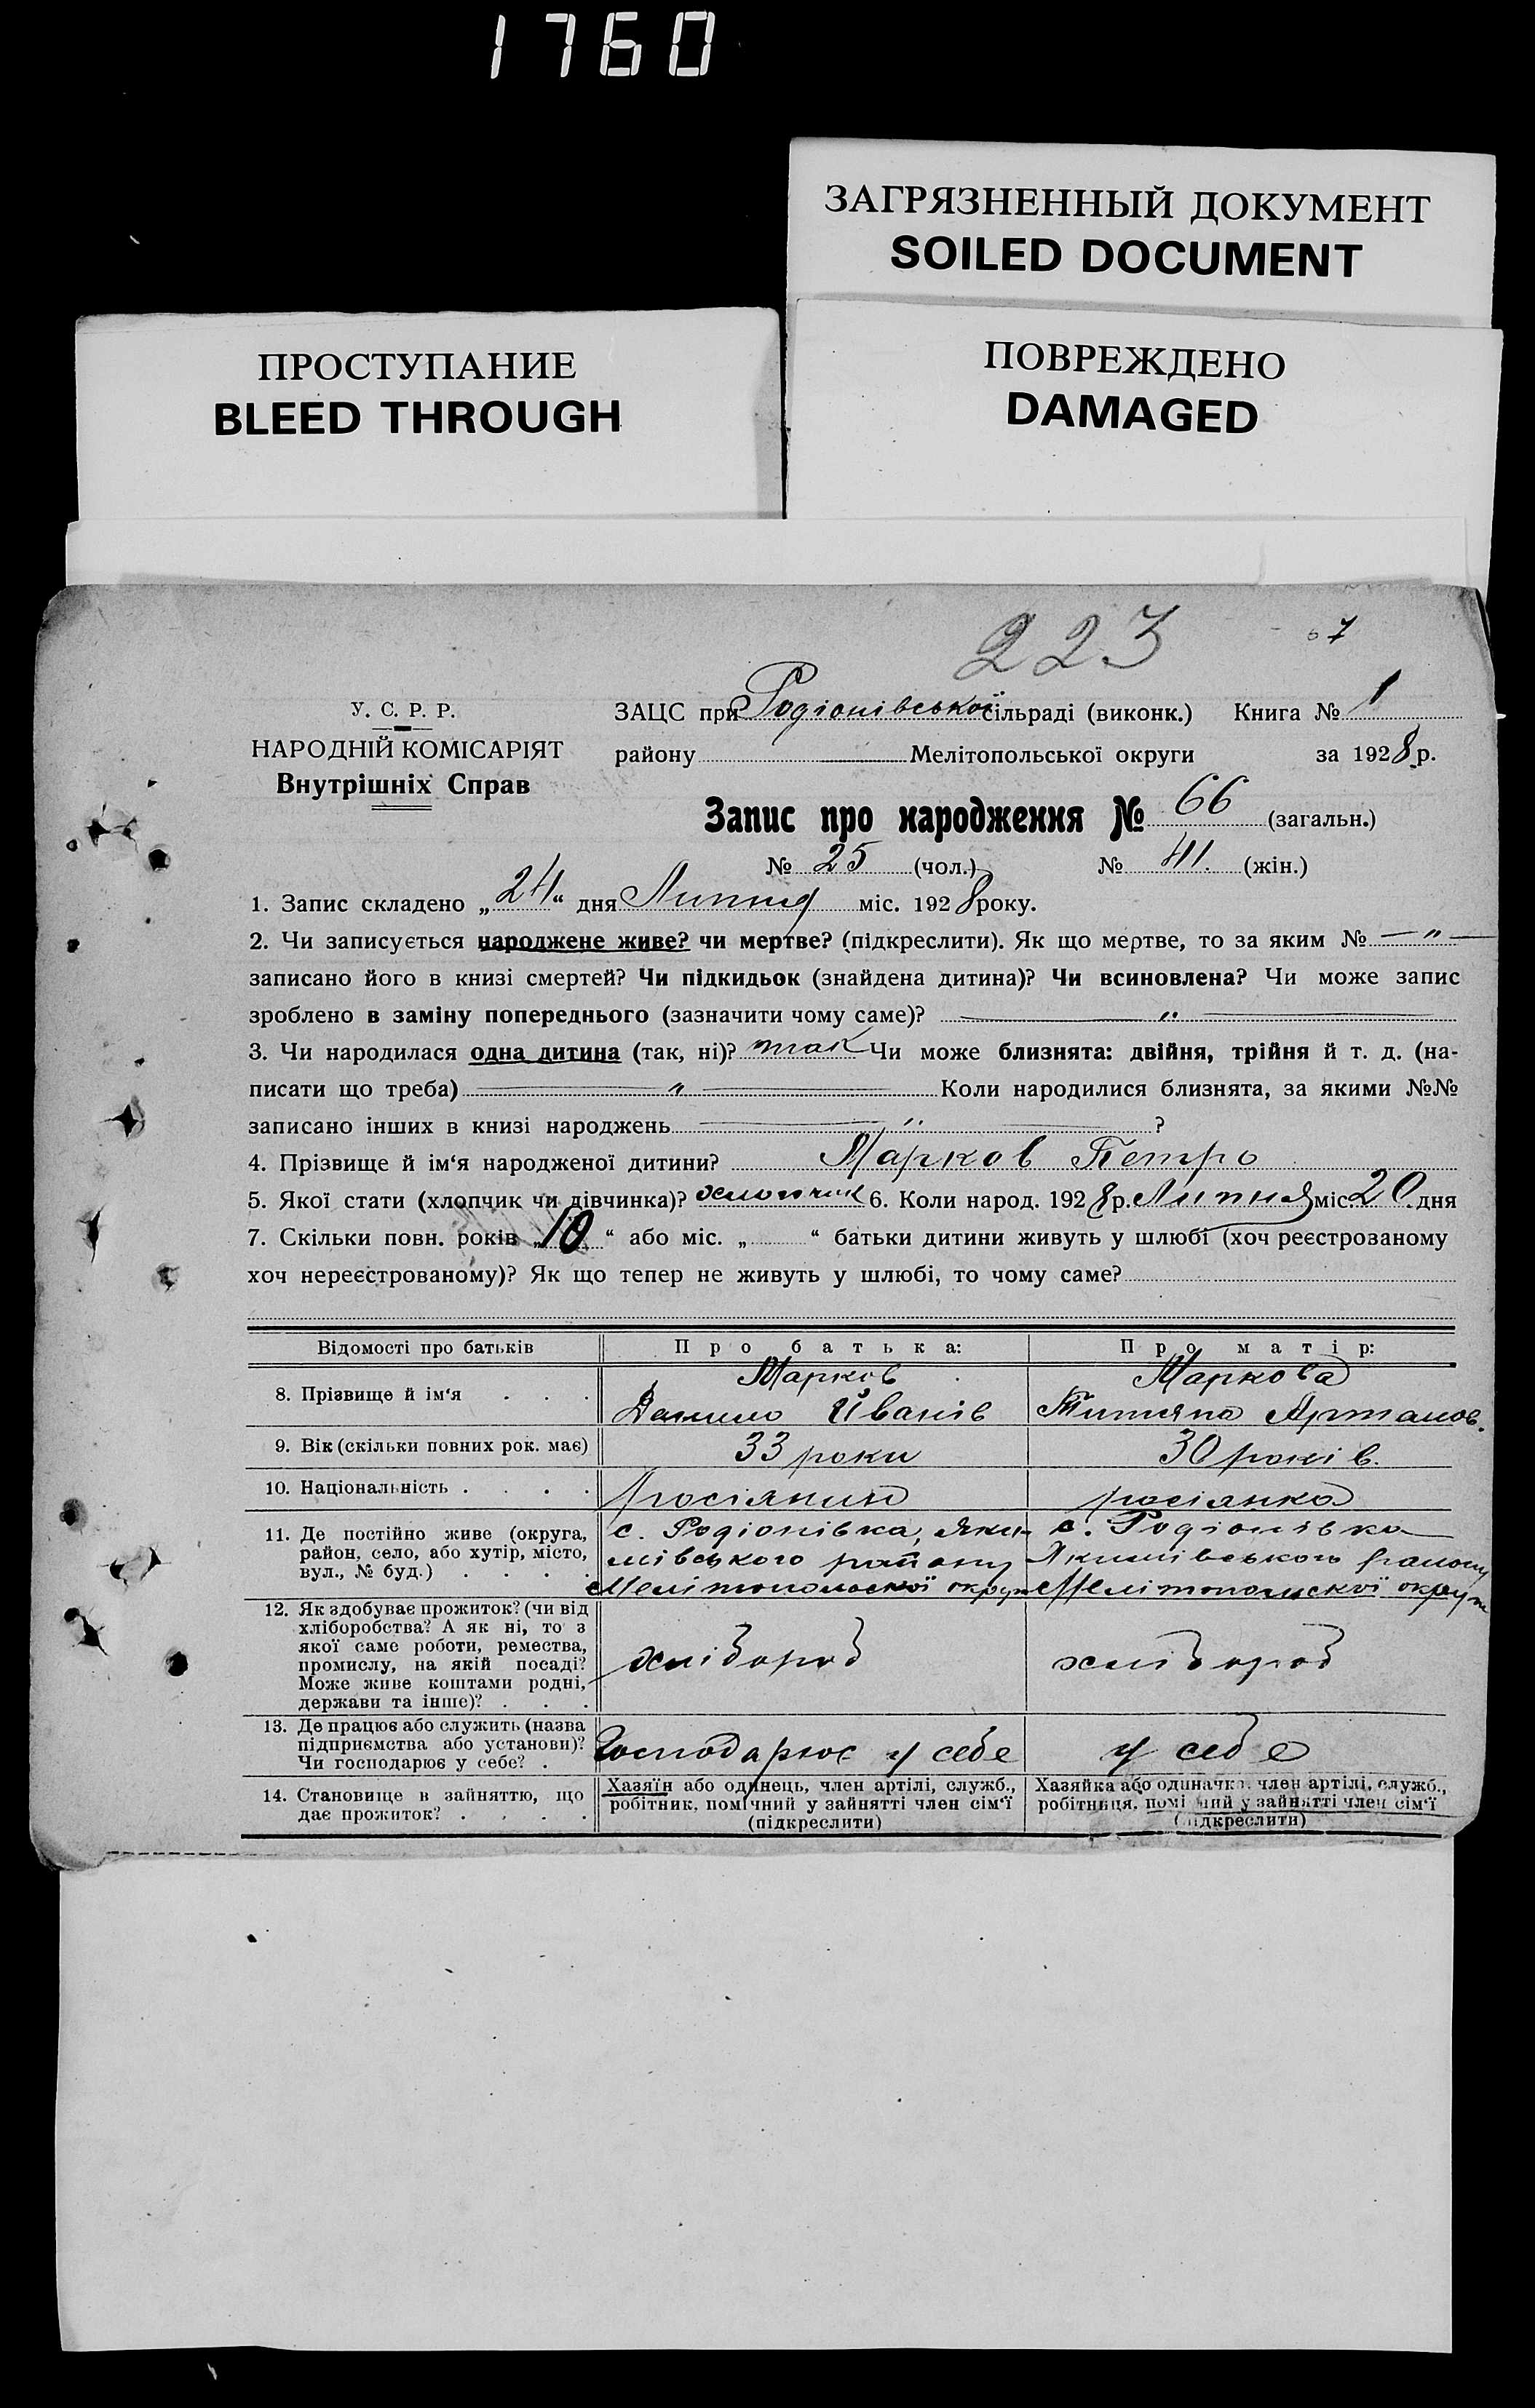 1760
ЗАГРЯЗНЕННЫЙ ДОКУМЕНТ
SOILED DOCUMENT
ПРОСТУПАНИЕ
BLEED THROUGH
ПОВРЕЖДЕНО
DAMAGED
223
67
У. С. Р. Р.
НАРОДНІЙ КОМІСАРІЯТ
Внутрішніх Справ
ЗАЦС при Родіонівської сільраді (виконк.) Книга № 1
району Мелітопольської округи за 1928 р.
Запис про народження № 66 (загальн.)
№ 25 (чол.) № 41. (жін.)
1. Запис складено „24“ дня Липня міс. 1928 року.
2. Чи записується народжене живе? чи мертве? (підкреслити). Як що мертве, то за яким № — „ —
записано його в книзі смертей? Чи підкидьок (знайдена дитина)? Чи всиновлена? Чи може запис
зроблено в заміну попереднього (зазначити чому саме)? — „ —
3. Чи народилася одна дитина (так, ні)? так Чи може близнята: двійня, трійня й т. д. (на-
писати що треба) — „ — Коли народилися близнята, за якими №№
записано інших в книзі народжень — „ — ?
4. Прізвище й ім‘я народженої дитини? Марков Петро
5. Якої стати (хлопчик чи дівчинка)? хлопчик 6. Коли народ. 1928 р. Липня міс. 20 дня
7. Скільки повн. років „10“ або міс. „ “ батьки дитини живуть у шлюбі (хоч реєстрованому
хоч нереєстрованому)? Як що тепер не живуть у шлюбі, то чому саме?
Відомості про батьків Про батька: Про матір:
8. Прізвище й ім‘я . . .
Марков
Данило Іванів
Маркова
Титяна Артамов.
9. Вік (скільки повних рок. має) 33 роки 30 років.
10. Національність . . . . росіянин росіянка
11. Де постійно живе (округа,
район, село, або хутір, місто,
вул., № буд.) . . . .
с. Родіонівка, Яки-
мівського району
Мелітопольської округи
с. Родіонівка
Якимівського району
Мелітопольскої округи
12. Як здобуває прожиток? (чи від
хліборобства? А як ні, то з
якої саме роботи, ремества,
промислу, на якій посаді?
Може живе коштами родні,
держави та інше)? . . .
хлібороб
хлібороб
13. Де працює або служить (назва
підприємства або установи)?
Чи господарює у себе? .
Господарює у себе
у себе
14. Становище в зайняттю, що
дає прожиток? . . . .
Хазяїн або одинець, член артілі, служб.,
робітник, помічний у зайнятті член сім‘ї
(підкреслити)
Хазяйка або одиначка, член артілі, служб.,
робітниця, помічний у зайнятті член сім‘ї
(підкреслити)